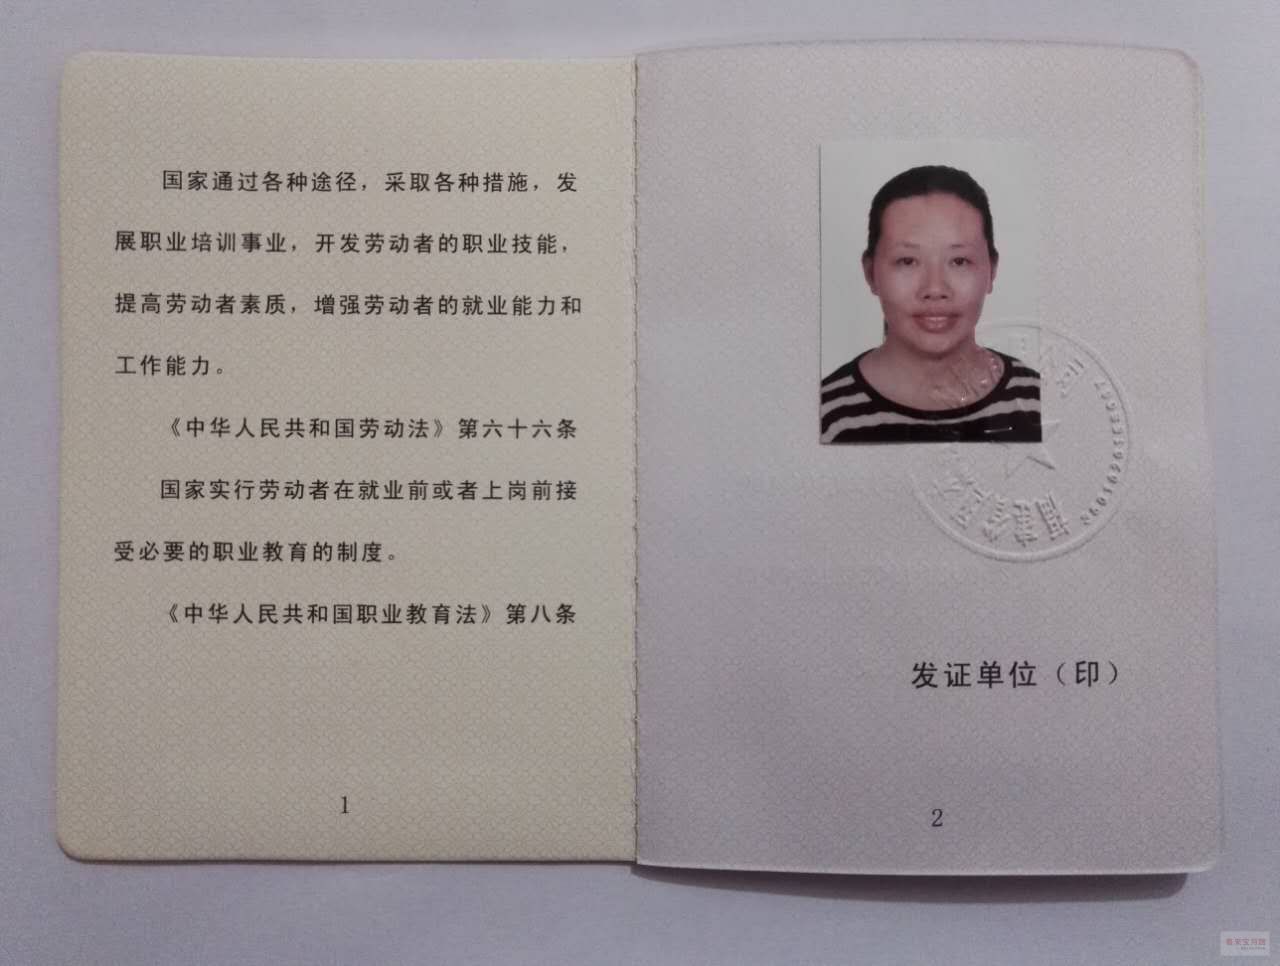 国家通过各种途径，采取各种措施，发
展职业培训事业，开发劳动者的职业技能，
提高劳动者素质，增强劳动者的就业能力和
工作能力。
《中华人民共和国劳动法》第六十六条
国家实行劳动者在就业前或者上岗前接
受必要的职业教育的制度。
《中华人民共和国职业教育法》第八条
1
发证单位（印）
2